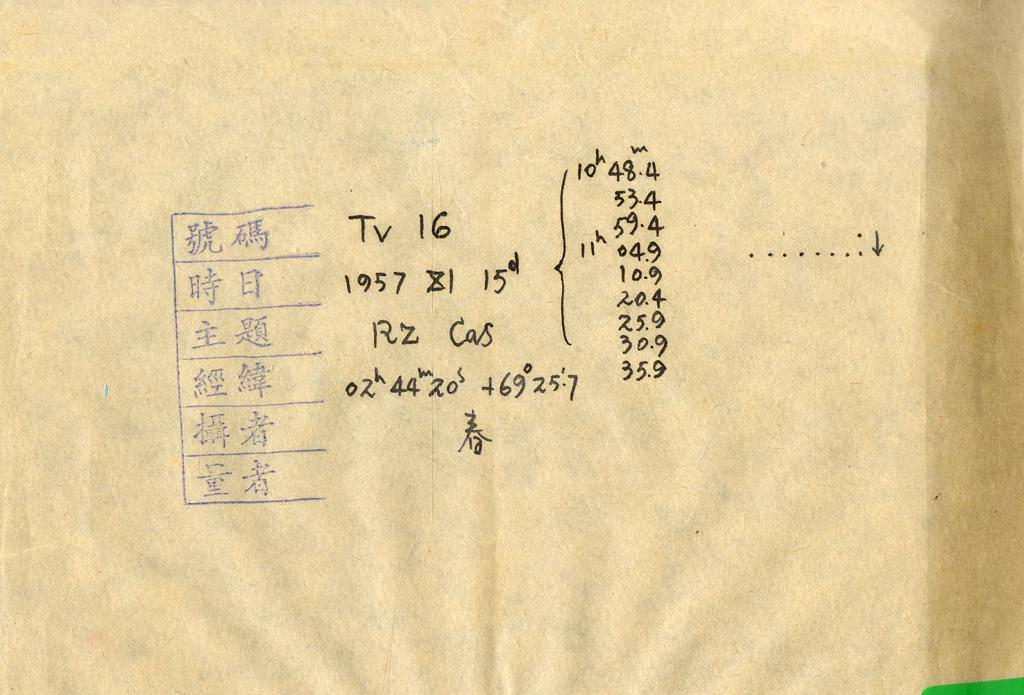 號碼 Tv 16
時日 1957 XI 15ᵈ
主題 RZ Cas
經緯 02ʰ 44ᵐ 20ˢ +69°25'.7
攝者 春
量者
10ʰ 48ᵐ.4
53.4
59.4
11ʰ 04.9
10.9
20.4
25.9
30.9
35.9
. . . . . . . : ↓